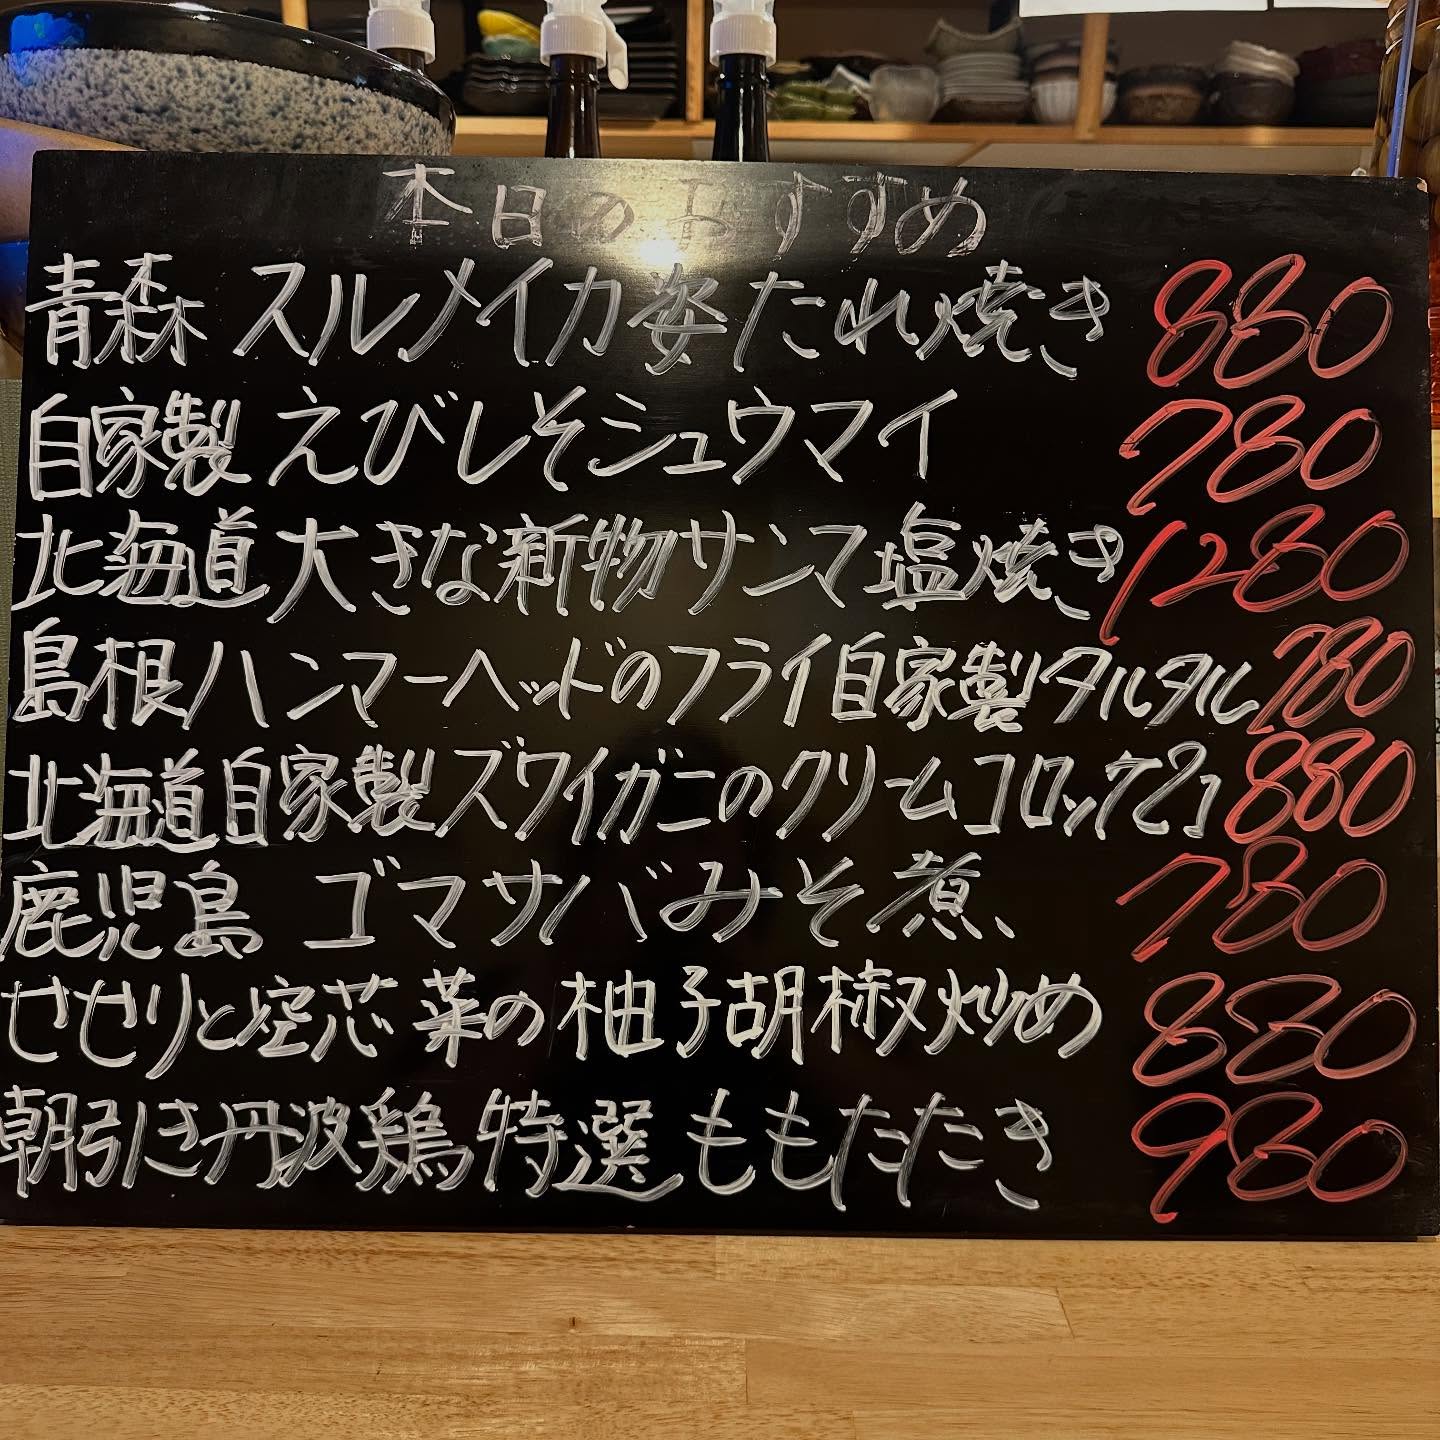 本日のおすすめ
青森 スルメイカ姿たれ焼き 880
自家製 えびしそシュウマイ 780
北海道大きな新物サンマ塩焼き 1280
島根ハンマーヘッドのフライ自家製タルタル 780
北海道自家製ズワイガニのクリームコロッケ2コ 880
鹿児島 ゴマサバみそ煮 780
せせりと空芯菜の柚子胡椒炒め 880
朝引き丹波鶏特選ももたたき 980